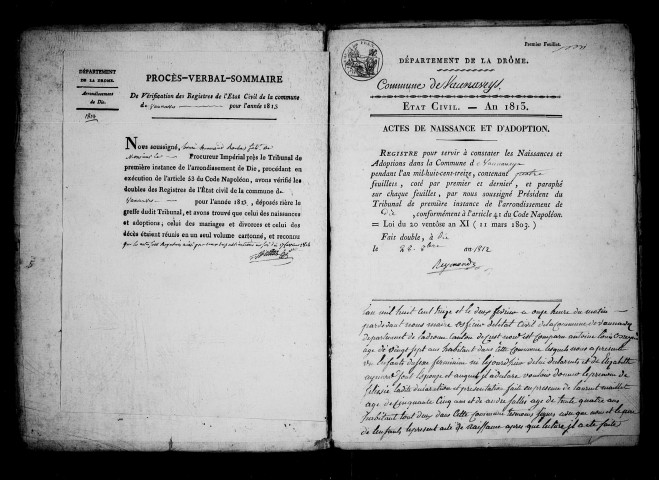 DÉPARTEMENT
DE LA DRÔME.
Arrondissement
de Die.
1814
PROCÈS-VERBAL-SOMMAIRE
De Vérification des Registres de l'État Civil de la commune
de Vaunaveys pour l'année 1813
Nous soussigné,
Procureur Impérial près le Tribunal de
première instance de l'arrondissement de Die, procédant en
exécution de l'article 53 du Code Napoléon, avons vérifié les
doubles des Registres de l'État civil de la commune de
Vaunaveys pour l'année 1813, déposés rière le
greffe dudit Tribunal, et avons trouvé que celui des naissances
et adoptions, celui des mariages et divorces et celui des
décès étaient réunis en un seul volume cartonné, et reconnu
Premier Feuillet.
DÉPARTEMENT DE LA DRÔME.
Commune de Vaunaveys.
ÉTAT CIVIL. — AN 1813.
ACTES DE NAISSANCE ET D'ADOPTION.
REGISTRE pour servir à constater les Naissances et
Adoptions dans la Commune de Vaunaveys
pendant l'an mil-huit-cent-treize, contenant quatre
feuillets, coté par premier et dernier, et paraphé
sur chaque feuillet, par nous soussigné Président du
Tribunal de première instance de l'arrondissement de
Die, conformément à l'article 41 du Code Napoléon.
= Loi du 20 ventôse an XI ( 11 mars 1803. )
Fait double, à Die
le 22 8bre an 1812
Reymond
L'an mil huit cent treize et le deux fevrier a onze heure du matin
pardevant nous maire officier de letat civil de la commune de vaunaveys
departement de la drome canton de crest nord est comparu antoine louis
agé de vingt sept ans habitant dans cette commune lequel nous a presenté
un enfant de sexe feminin né le jourdhuy de lui declarant et de elizabeth
son epouse et auquel il a declaré vouloir donner le prenom de
ladite declaration et presentation faite en presence de laurent
age de cinquante cinq ans et de andre age de trante quatre ans
habitant tout deux dans cette commune temoins signes avec nous et le pere
de lenfant le present acte de naissance apres que lecture il a été faite